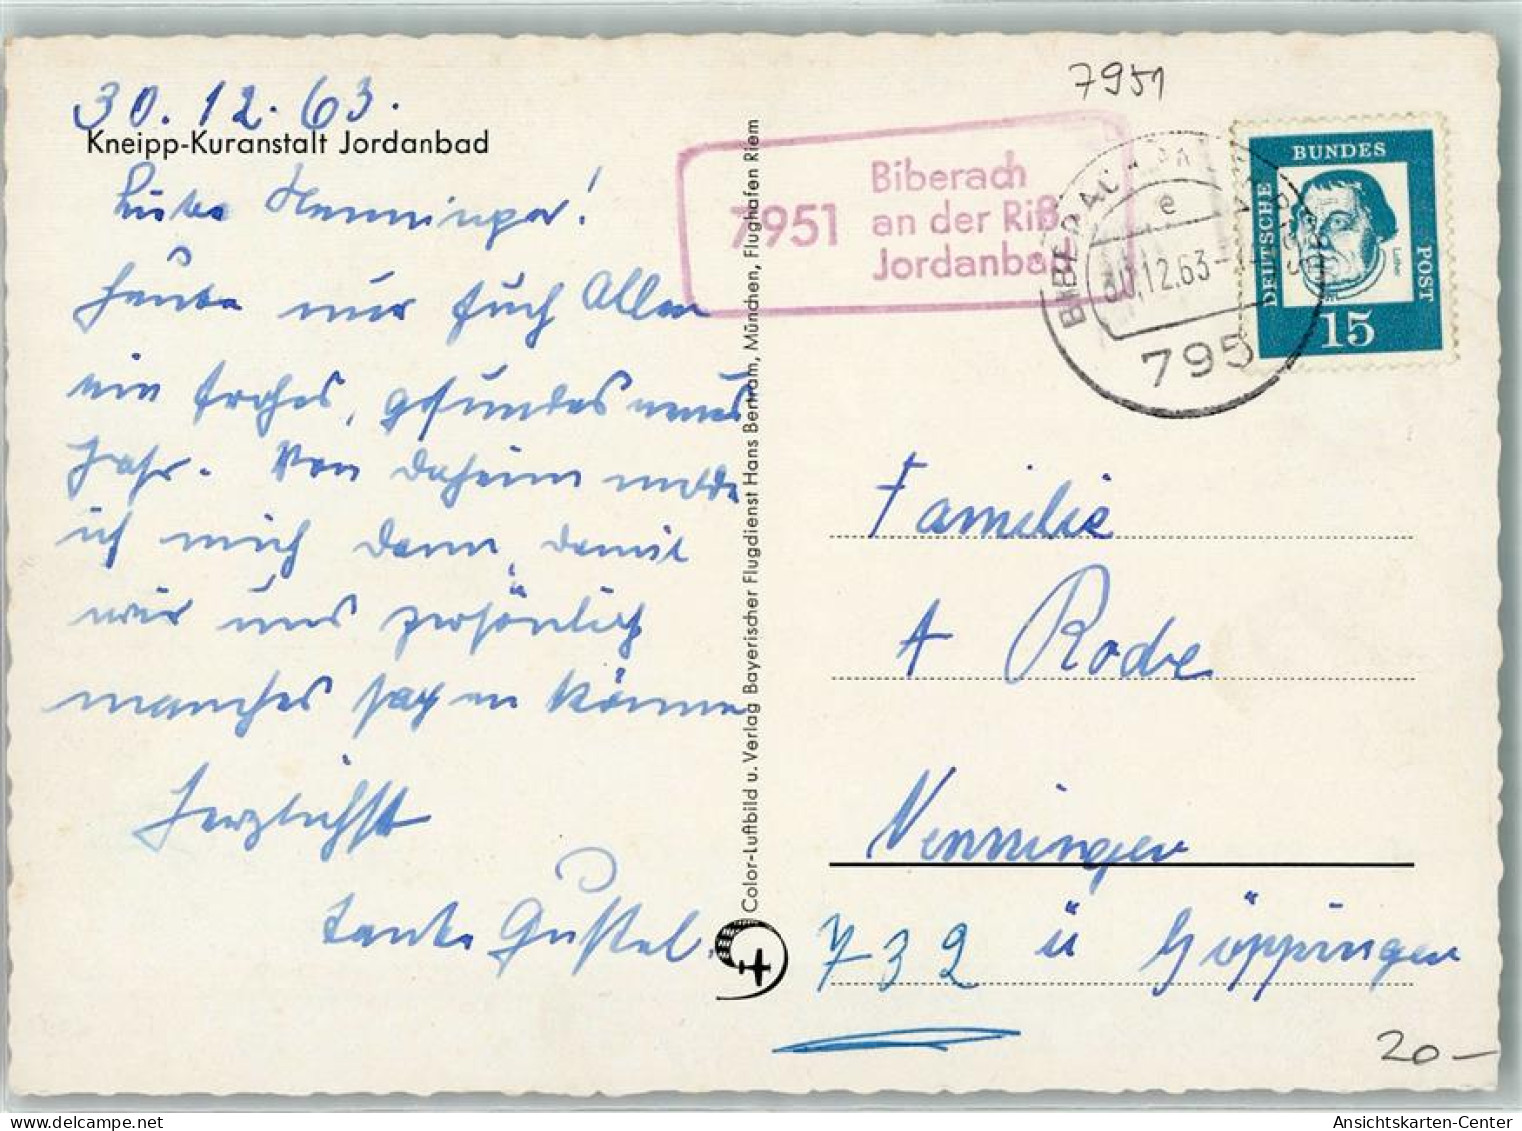 30.12.63.
Kneipp-Kuranstalt Jordanbad
Liebe Nenninger!
Heute nur Euch Allen
ein frohes, gesundes neues
Jahr. Von daheim melde
ich mich dann, damit
wir uns persönlich
manches sagen können
Herzlichst
Tante Gustel.
Color-Luftbild u. Verlag Bayerischer Flugdienst Hans Bertram, München, Flughafen Riem
7951
7951
Biberach
an der Riß
Jordanbad
e
30.12.63
795
BUNDES
DEUTSCHE
POST
Luther
15
Familie
A Rode
Nenningen
732 ü Göppingen
20-
delcampe.net
Ansichtskarten-Center